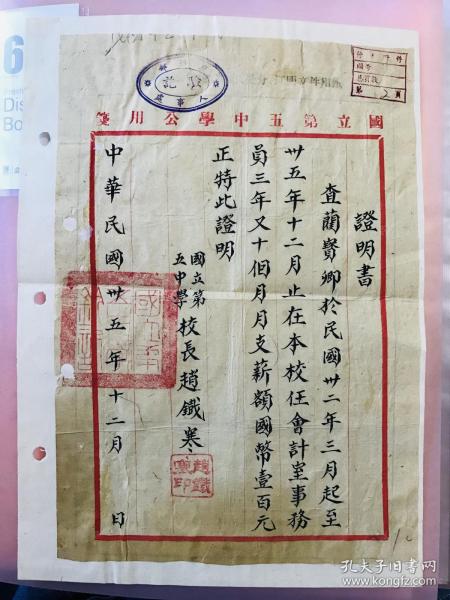 國立第五中學公用箋
證明書
查藺賢卿於民國卅二年三月起至
卅五年十二月止在本校任會計室事務
員三年又十個月月支薪額國幣壹百元
正特此證明
國立第
五中學
校長趙鐵寒
趙鐵寒印
中華民國卅五年十二月 日
驗訖
第2頁
6
Dis
Bo
孔夫子旧书网
www.kongfz.com